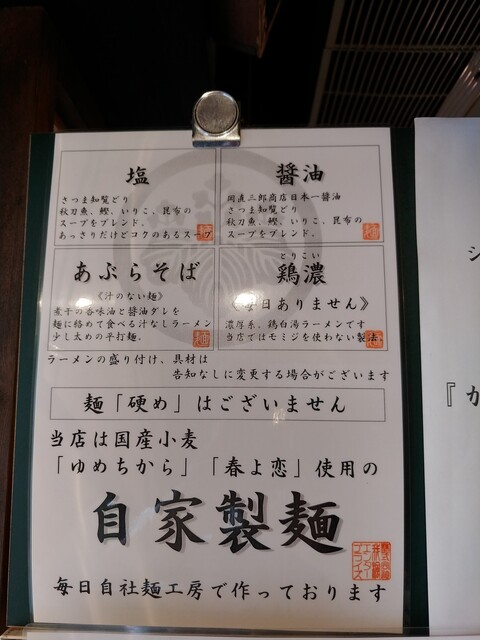 塩
さつま知覧どり
秋刀魚、鰹、いりこ、昆布の
スープをブレンド。
あっさりだけどコクのあるスープ
醤油
岡直三郎商店日本一醤油
さつま知覧どり
秋刀魚、鰹、いりこ、昆布の
スープをブレンド。
あぶらそば
《汁のない麺》
煮干の香味油と醤油ダレを
麺に絡めて食べる汁なしラーメン
少し太めの平打麺。
とりこい
鶏濃
《毎日ありません》
濃厚系、鶏白湯ラーメンです
当店ではモミジを使わない製法
ラーメンの盛り付け、具材は
告知なしに変更する場合がございます
麺「硬め」はございません
当店は国産小麦
「ゆめちから」「春よ恋」使用の
自家製麺
毎日自社麺工房で作っております
シ
『か